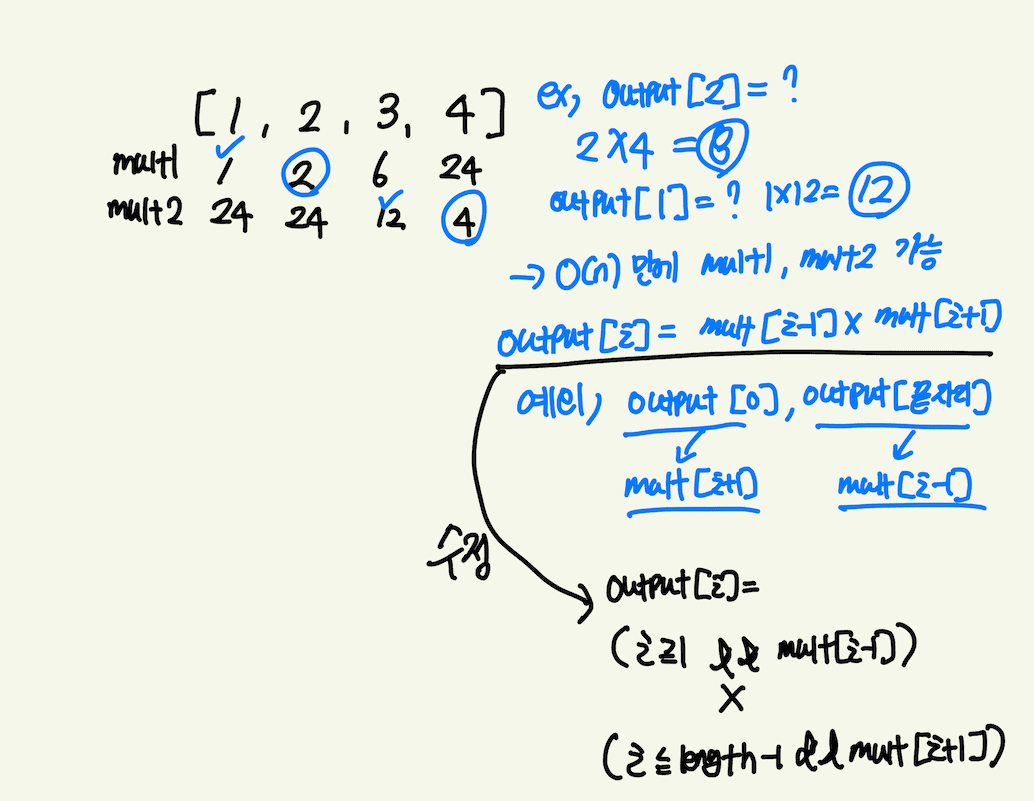 [1, 2, 3, 4]
mult1 1 2 6 24
mult2 24 24 12 4
ex, output[2]= ?
2X4 = 8
output[1]= ? 1x12= 12
→ O(n) 만에 mult1, mult2 가능
output[i]= mult[i-1] x mult[i+1]
예외, output[0], output[끝자리]
mult[i+1] mult[i-1]
수정
output[i]=
(i≥1 && mult[i-1])
X
(i≤length-1 && mult[i+1])